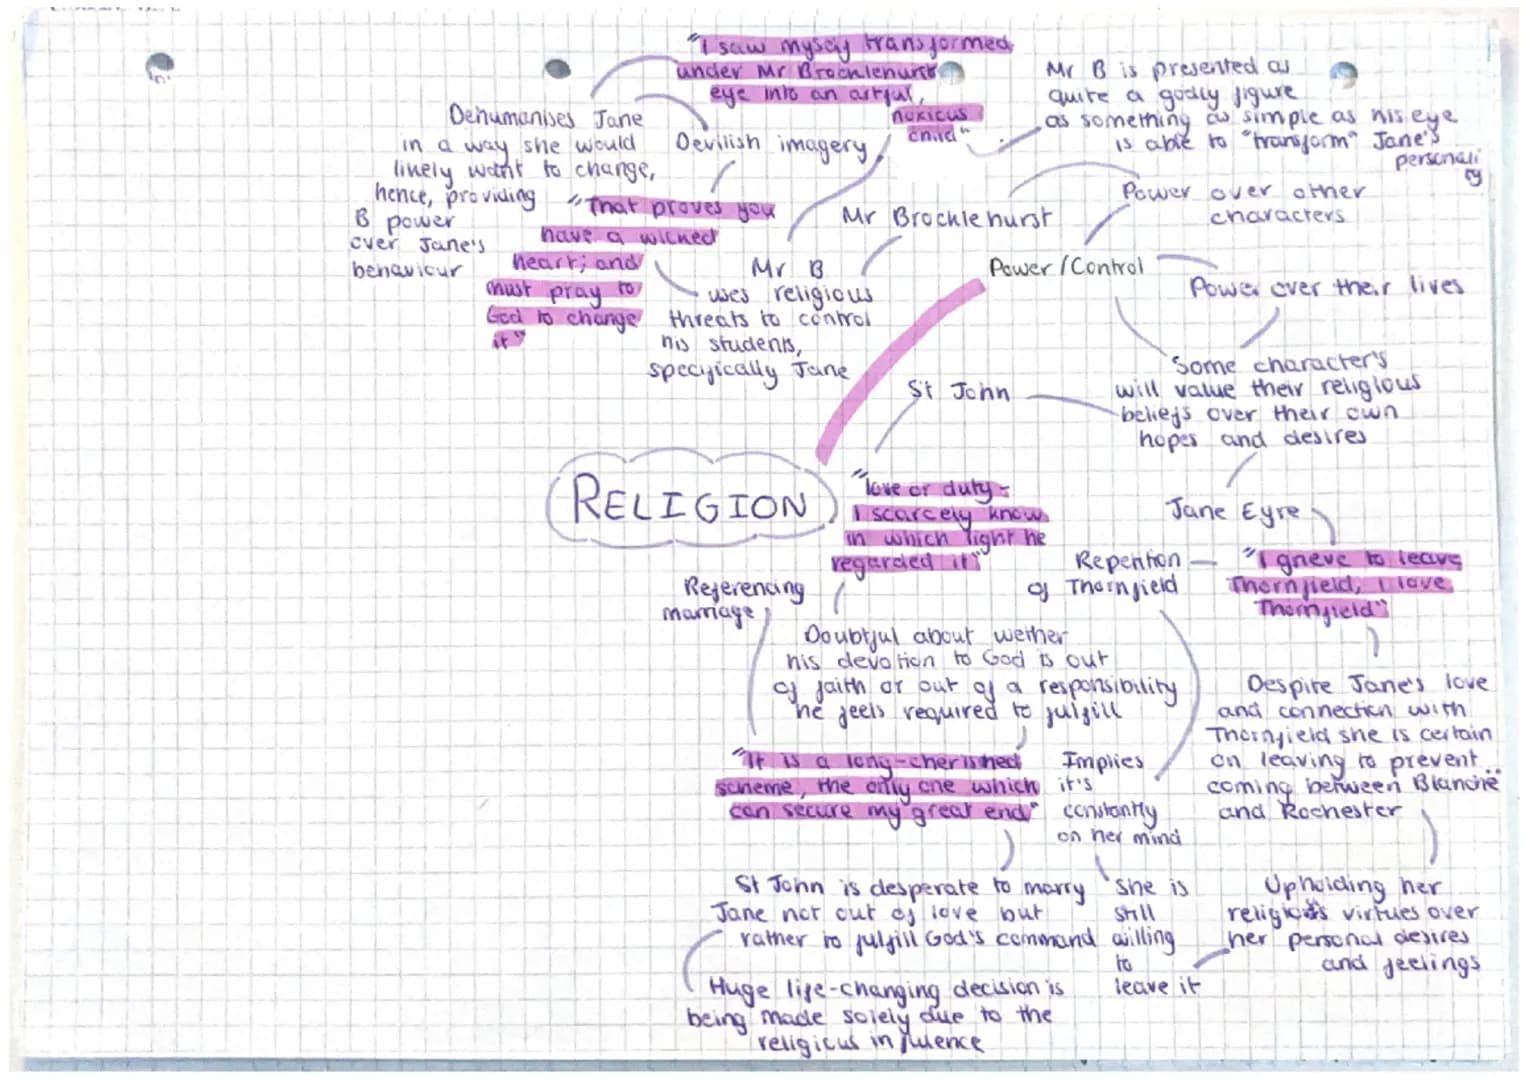 "I saw myself transformed
under Mr Brocklehurst's
eye into an artful,
noxious
child"
Mr B is presented as
quite a godly figure
as something as simple as his eye
is able to "transform" Jane's
personality
Dehumanises Jane
in a way she would
likely want to change,
hence, providing
B power
over Jane's
behaviour
Devilish imagery
"That proves you
have a wicked
heart; and
must pray to
God to change
it"
Mr Brocklehurst
Mr B
uses religious
threats to control
his students,
specifically Jane
Power over other
characters
Power/Control
Power over their lives
Some character's
will value their religious
beliefs over their own
hopes and desires
St John
RELIGION
"love or duty -
I scarcely know
in which light he
regarded it"
Jane Eyre
"I grieve to leave
Thornfield, I love
Thornfield"
Repention
of Thornfield
Referencing
marriage
Doubtful about wether
his devotion to God is out
of faith or out of a responsibility
he feels required to fulfill
Despite Jane's love
and connection with
Thornfield she is certain
on leaving to prevent
coming between Blanche
and Rochester
"It is a long-cherished
scheme, the only one which
can secure my great end"
Implies
it's
constantly
on her mind
St John is desperate to marry
Jane not out of love but
rather to fulfill God's command
she is
still
willing
to
leave it
Upholding her
religious virtues over
her personal desires
and feelings
Huge life-changing decision is
being made solely due to the
religious influence